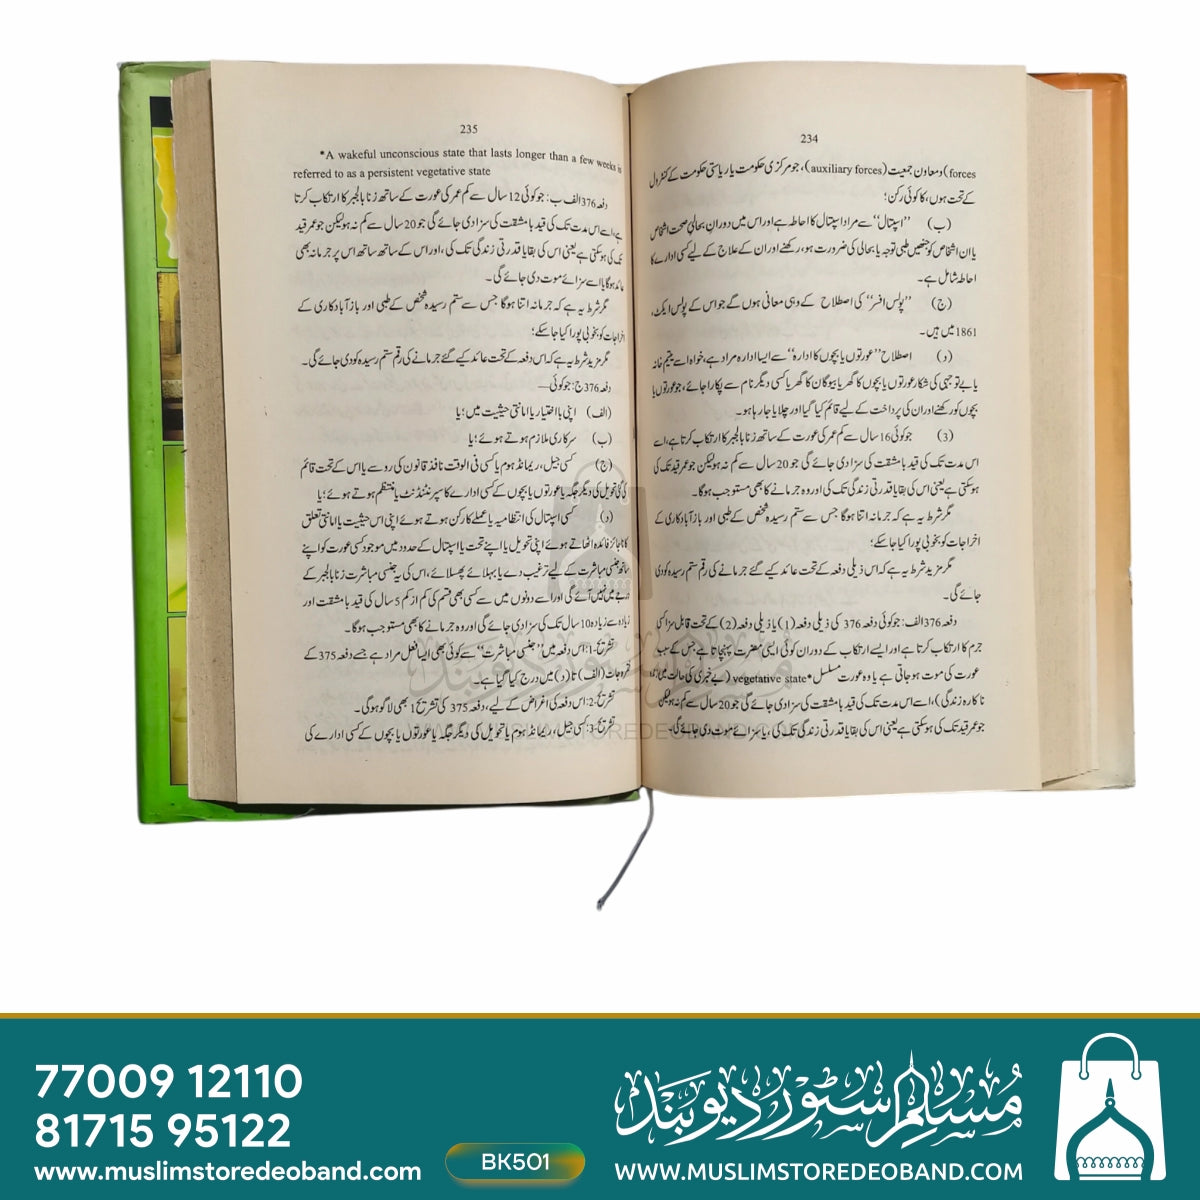 234
forces) و معاون جمعیت (auxiliary forces)، جو مرکزی حکومت یا ریاستی حکومت کے کنٹرول
کے تحت ہوں، کا کوئی رکن؛
(ب) ’’اسپتال‘‘ سے مراد اسپتال کا احاطہ ہے اور اس میں دوران بحالیٔ صحت اشخاص
یا ان اشخاص کو جنھیں طبی توجہ یا بحالی کی ضرورت ہو، رکھنے اور ان کے علاج کے لیے کسی ادارے کا
احاطہ شامل ہے۔
(ج) ’’پولس افسر‘‘ کی اصطلاح کے وہی معانی ہوں گے جو اس کے پولس ایکٹ،
1861 میں ہیں۔
(د) اصطلاح ’’عورتوں یا بچوں کا ادارہ‘‘ سے ایسا ادارہ مراد ہے، خواہ اسے یتیم خانہ
یا بے توجہی کی شکار عورتوں یا بچوں کا گھر یا بیوگان کا گھر یا کسی دیگر نام سے پکارا جائے، جو عورتوں یا
بچوں کو رکھنے اور ان کی پرداخت کے لیے قائم کیا گیا اور چلایا جا رہا ہو۔
(3) جو کوئی 16 سال سے کم عمر کی عورت کے ساتھ زنا بالجبر کا ارتکاب کرتا ہے، اسے
اس مدت تک کی قید با مشقت کی سزا دی جائے گی جو 20 سال سے کم نہ ہو لیکن جو عمر قید تک کی
ہو سکتی ہے یعنی اس کی بقایا قدرتی زندگی تک کی اور وہ جرمانے کا بھی مستوجب ہوگا۔
مگر شرط یہ ہے کہ جرمانہ اتنا ہوگا جس سے ستم رسیدہ شخص کے طبی اور باز آبادکاری کے
اخراجات کو بخوبی پورا کیا جا سکے؛
مگر مزید شرط یہ ہے کہ اس ذیلی دفعہ کے تحت عائد کیے گئے جرمانے کی رقم ستم رسیدہ کو دی
جائے گی۔
دفعہ 376 الف: جو کوئی دفعہ 376 کی ذیلی دفعہ (1) یا ذیلی دفعہ (2) کے تحت قابل سزا کسی
جرم کا ارتکاب کرتا ہے اور ایسے ارتکاب کے دوران کوئی ایسی مضرت پہنچاتا ہے جس کے سبب
عورت کی موت ہو جاتی ہے یا وہ عورت مسلسل *vegetative state (بے خبری کی حالت میں
ناکارہ زندگی)، اسے اس مدت تک کی قید با مشقت کی سزا دی جائے گی جو 20 سال سے کم نہ ہو لیکن
جو عمر قید تک کی ہو سکتی ہے یعنی اس کی بقایا قدرتی زندگی تک کی، یا سزائے موت دی جائے گی۔
235
*A wakeful unconscious state that lasts longer than a few weeks is
referred to as a persistent vegetative state
دفعہ 376 الف ب: جو کوئی 12 سال سے کم عمر کی عورت کے ساتھ زنا بالجبر کا ارتکاب کرتا
ہے، اسے اس مدت تک کی قید با مشقت کی سزا دی جائے گی جو 20 سال سے کم نہ ہو لیکن جو عمر قید
تک کی ہو سکتی ہے یعنی اس کی بقایا قدرتی زندگی تک کی، اور اس کے ساتھ ساتھ اس پر جرمانہ بھی
عائد ہوگا یا اسے سزائے موت دی جائے گی۔
مگر شرط یہ ہے کہ جرمانہ اتنا ہوگا جس سے ستم رسیدہ شخص کے طبی اور باز آبادکاری کے
اخراجات کو بخوبی پورا کیا جا سکے؛
مگر مزید شرط یہ ہے کہ اس دفعہ کے تحت عائد کیے گئے جرمانے کی رقم ستم رسیدہ کو دی جائے گی۔
دفعہ 376 ج: جو کوئی—
(الف) اپنی با اختیار یا امانتی حیثیت میں؛ یا
(ب) سرکاری ملازم ہوتے ہوئے؛ یا
(ج) کسی جیل، ریمانڈ ہوم یا کسی فی الوقت نافذ قانون کی رو سے یا اس کے تحت قائم
کی گئی تحویل کی دیگر جگہ یا عورتوں یا بچوں کے کسی ادارے کا سپرنٹنڈنٹ یا منتظم ہوتے ہوئے؛ یا
(د) کسی اسپتال کی انتظامیہ یا عملے کا رکن ہوتے ہوئے اپنی اس حیثیت یا امانتی تعلق
کا ناجائز فائدہ اٹھاتے ہوئے اپنی تحویل یا اپنے تحت یا اسپتال کے حدود میں موجود کسی عورت کو اپنے
ساتھ جنسی مباشرت کے لیے ترغیب دے یا بہلائے پھسلائے، اس کی یہ جنسی مباشرت زنا بالجبر کے
زمرے میں نہیں آئے گی اور اسے دونوں میں سے کسی بھی قسم کی کم از کم 5 سال کی قید با مشقت اور
زیادہ سے زیادہ 10 سال تک کی سزا دی جائے گی اور وہ جرمانے کا بھی مستوجب ہوگا۔
تشریح-1: اس دفعہ میں ’’جنسی مباشرت‘‘ سے کوئی بھی ایسا فعل مراد ہے جسے دفعہ 375 کے
فقروجات (الف) تا (د) میں درج کیا گیا ہے۔
تشریح-2: اس دفعہ کی اغراض کے لیے، دفعہ 375 کی تشریح 1 بھی لاگو ہوگی۔
تشریح-3: کسی جیل، ریمانڈ ہوم یا تحویل کی دیگر جگہ یا عورتوں یا بچوں کے کسی ادارے کی
مسلم سٹور دیوبند
WWW.MUSLIMSTOREDEOBAND.COM
77009 12110
81715 95122
www.muslimstoredeoband.com
BK501
مسلم سٹور دیوبند
WWW.MUSLIMSTOREDEOBAND.COM